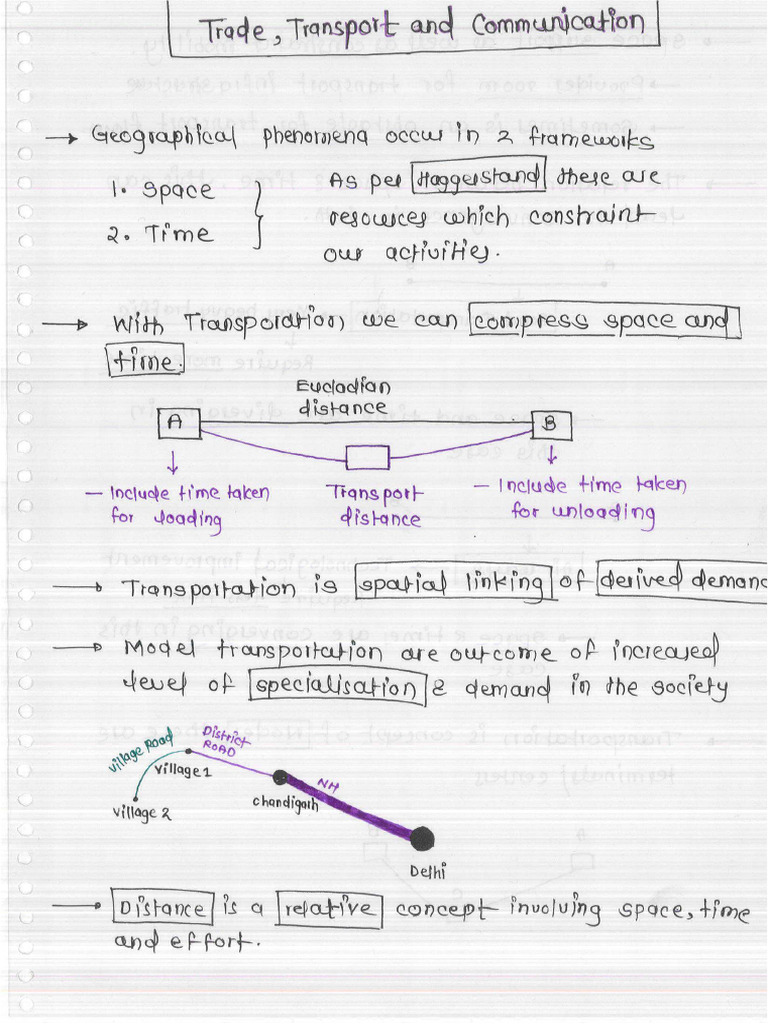 Trade, Transport and Communication
→ Geographical phenomena occur in 2 frameworks
1. Space
2. Time
As per Haggerstand these are
resources which constraint
our activities.
→ With Transporation, we can compress space and
time.
Eucladian
distance
A
B
- Include time taken
for loading
Transport
distance
- Include time taken
for unloading
→ Transportation is spatial linking of derived demand
→ Model transportation are outcome of increased
level of specialisation & demand in the society
Village Road
District
ROAD
village 1
village 2
NH
chandigarh
Delhi
→ Distance is a relative concept involving space, time
and effort.